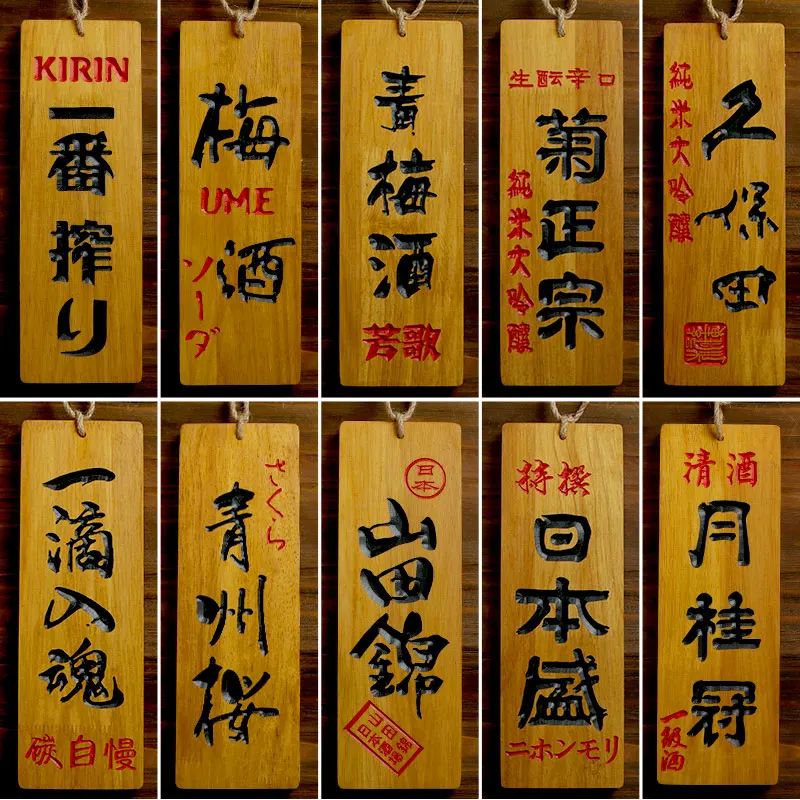 KIRIN
一番搾り
梅酒
UME
ソーダ
青梅酒
苦歌
生酛辛口
純米大吟醸
菊正宗
純米大吟醸
久保田
一滴入魂
碳自慢
さくら
青州桜
日本
山田錦
山田錦
日本酒場
特撰
日本盛
ニホンモリ
清酒
月桂冠
一级酒